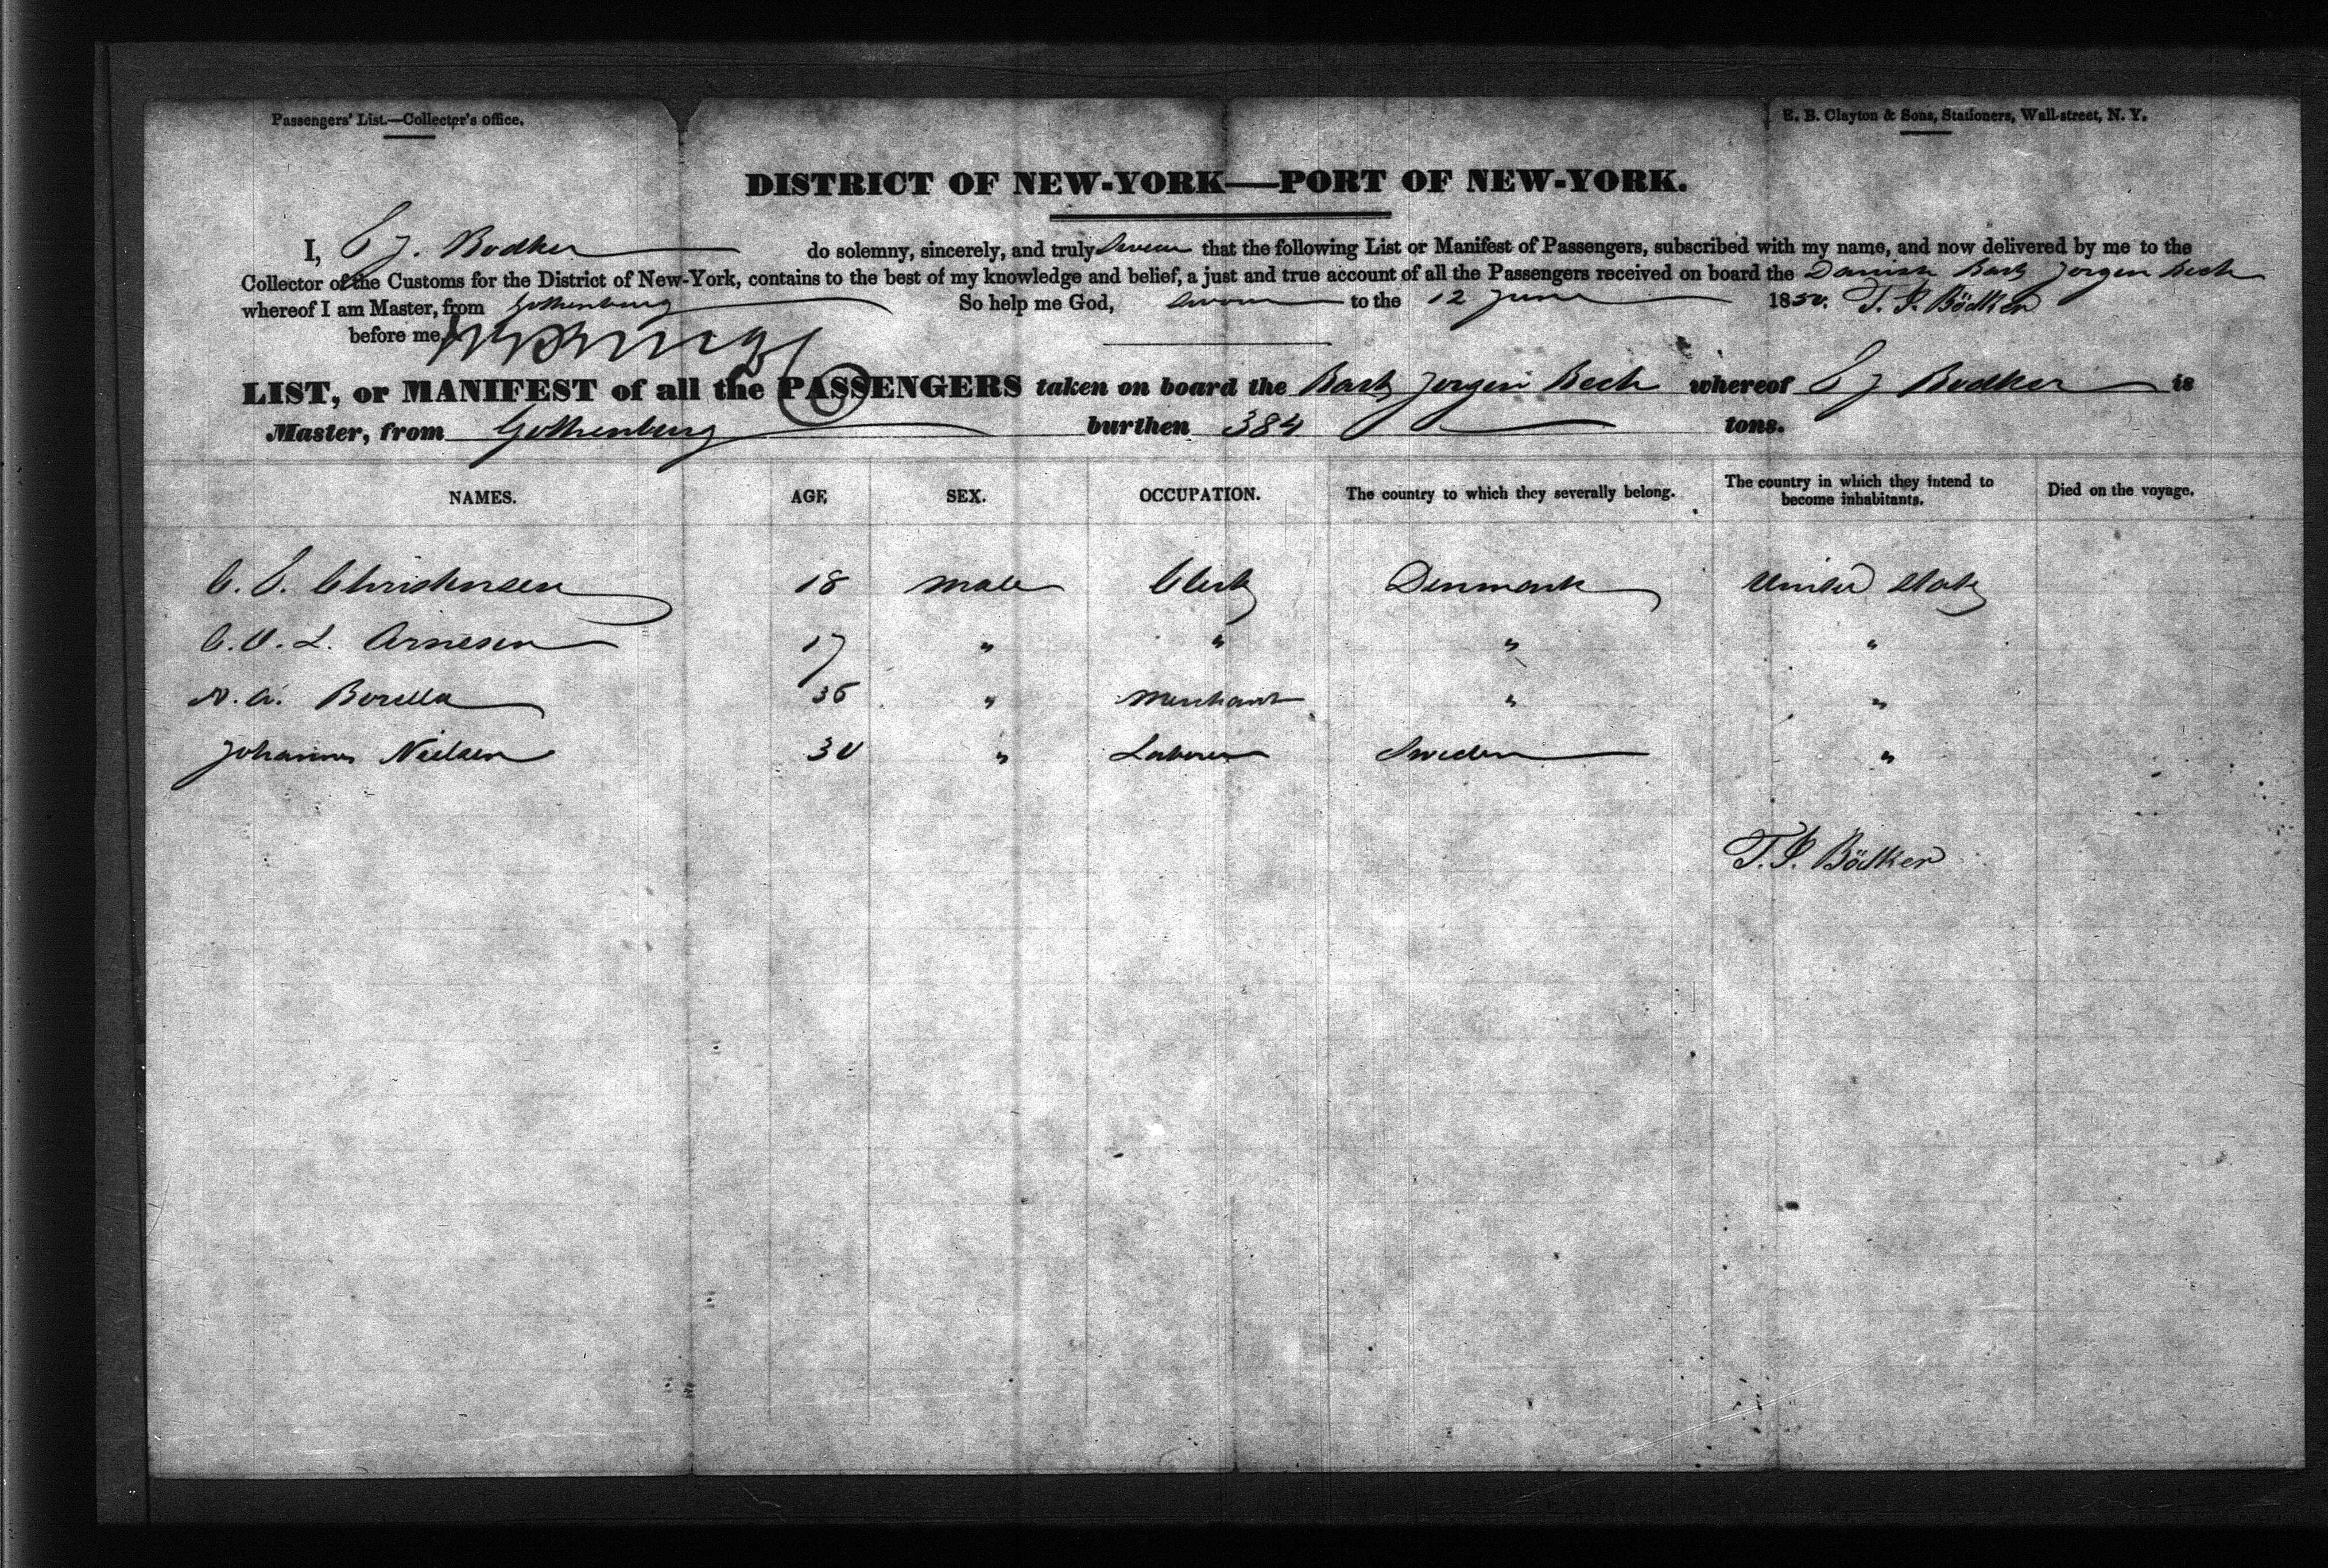 Passengers' List.—Collector's office.
E. B. Clayton & Sons, Stationers, Wall-street, N. Y.
DISTRICT OF NEW-YORK—PORT OF NEW-YORK.
I, T J. Bodker do solemny, sincerely, and truly swear that the following List or Manifest of Passengers, subscribed with my name, and now delivered by me to the
Collector of the Customs for the District of New-York, contains to the best of my knowledge and belief, a just and true account of all the Passengers received on board the Danish Bark Jorgen Bech
whereof I am Master, from Gothenburg So help me God, sworn to the 12 June 1850. T. J. Bödker
before me,
LIST, or MANIFEST of all the PASSENGERS taken on board the Bark Jorgen Bech whereof T J Bodker is
Master, from Gothenburg burthen 384 tons.
NAMES. AGE, SEX. OCCUPATION. The country to which they severally belong. The country in which they intend to become inhabitants. Died on the voyage.
C. E. Christensen 18 male Clerk Denmark United States
C. O. L. Arnesen 17 " " " "
N. A. Borella 36 " Merchant " "
Johannes Nielsen 30 " Laborer Sweden "
T. J. Bödker